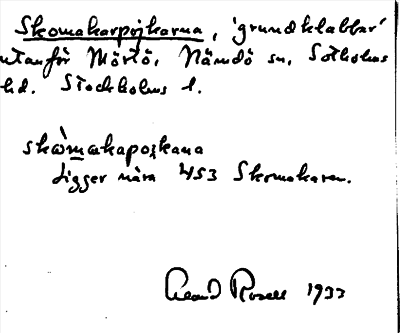 Skomakarpojkarna, 'grundklabbar'
utanför Mörtö, Nämdö sn, Sotholms
hd. Stockholms l.
skòmakapojkana
Ligger nära 453 Skomakaren.
Rosell 1933